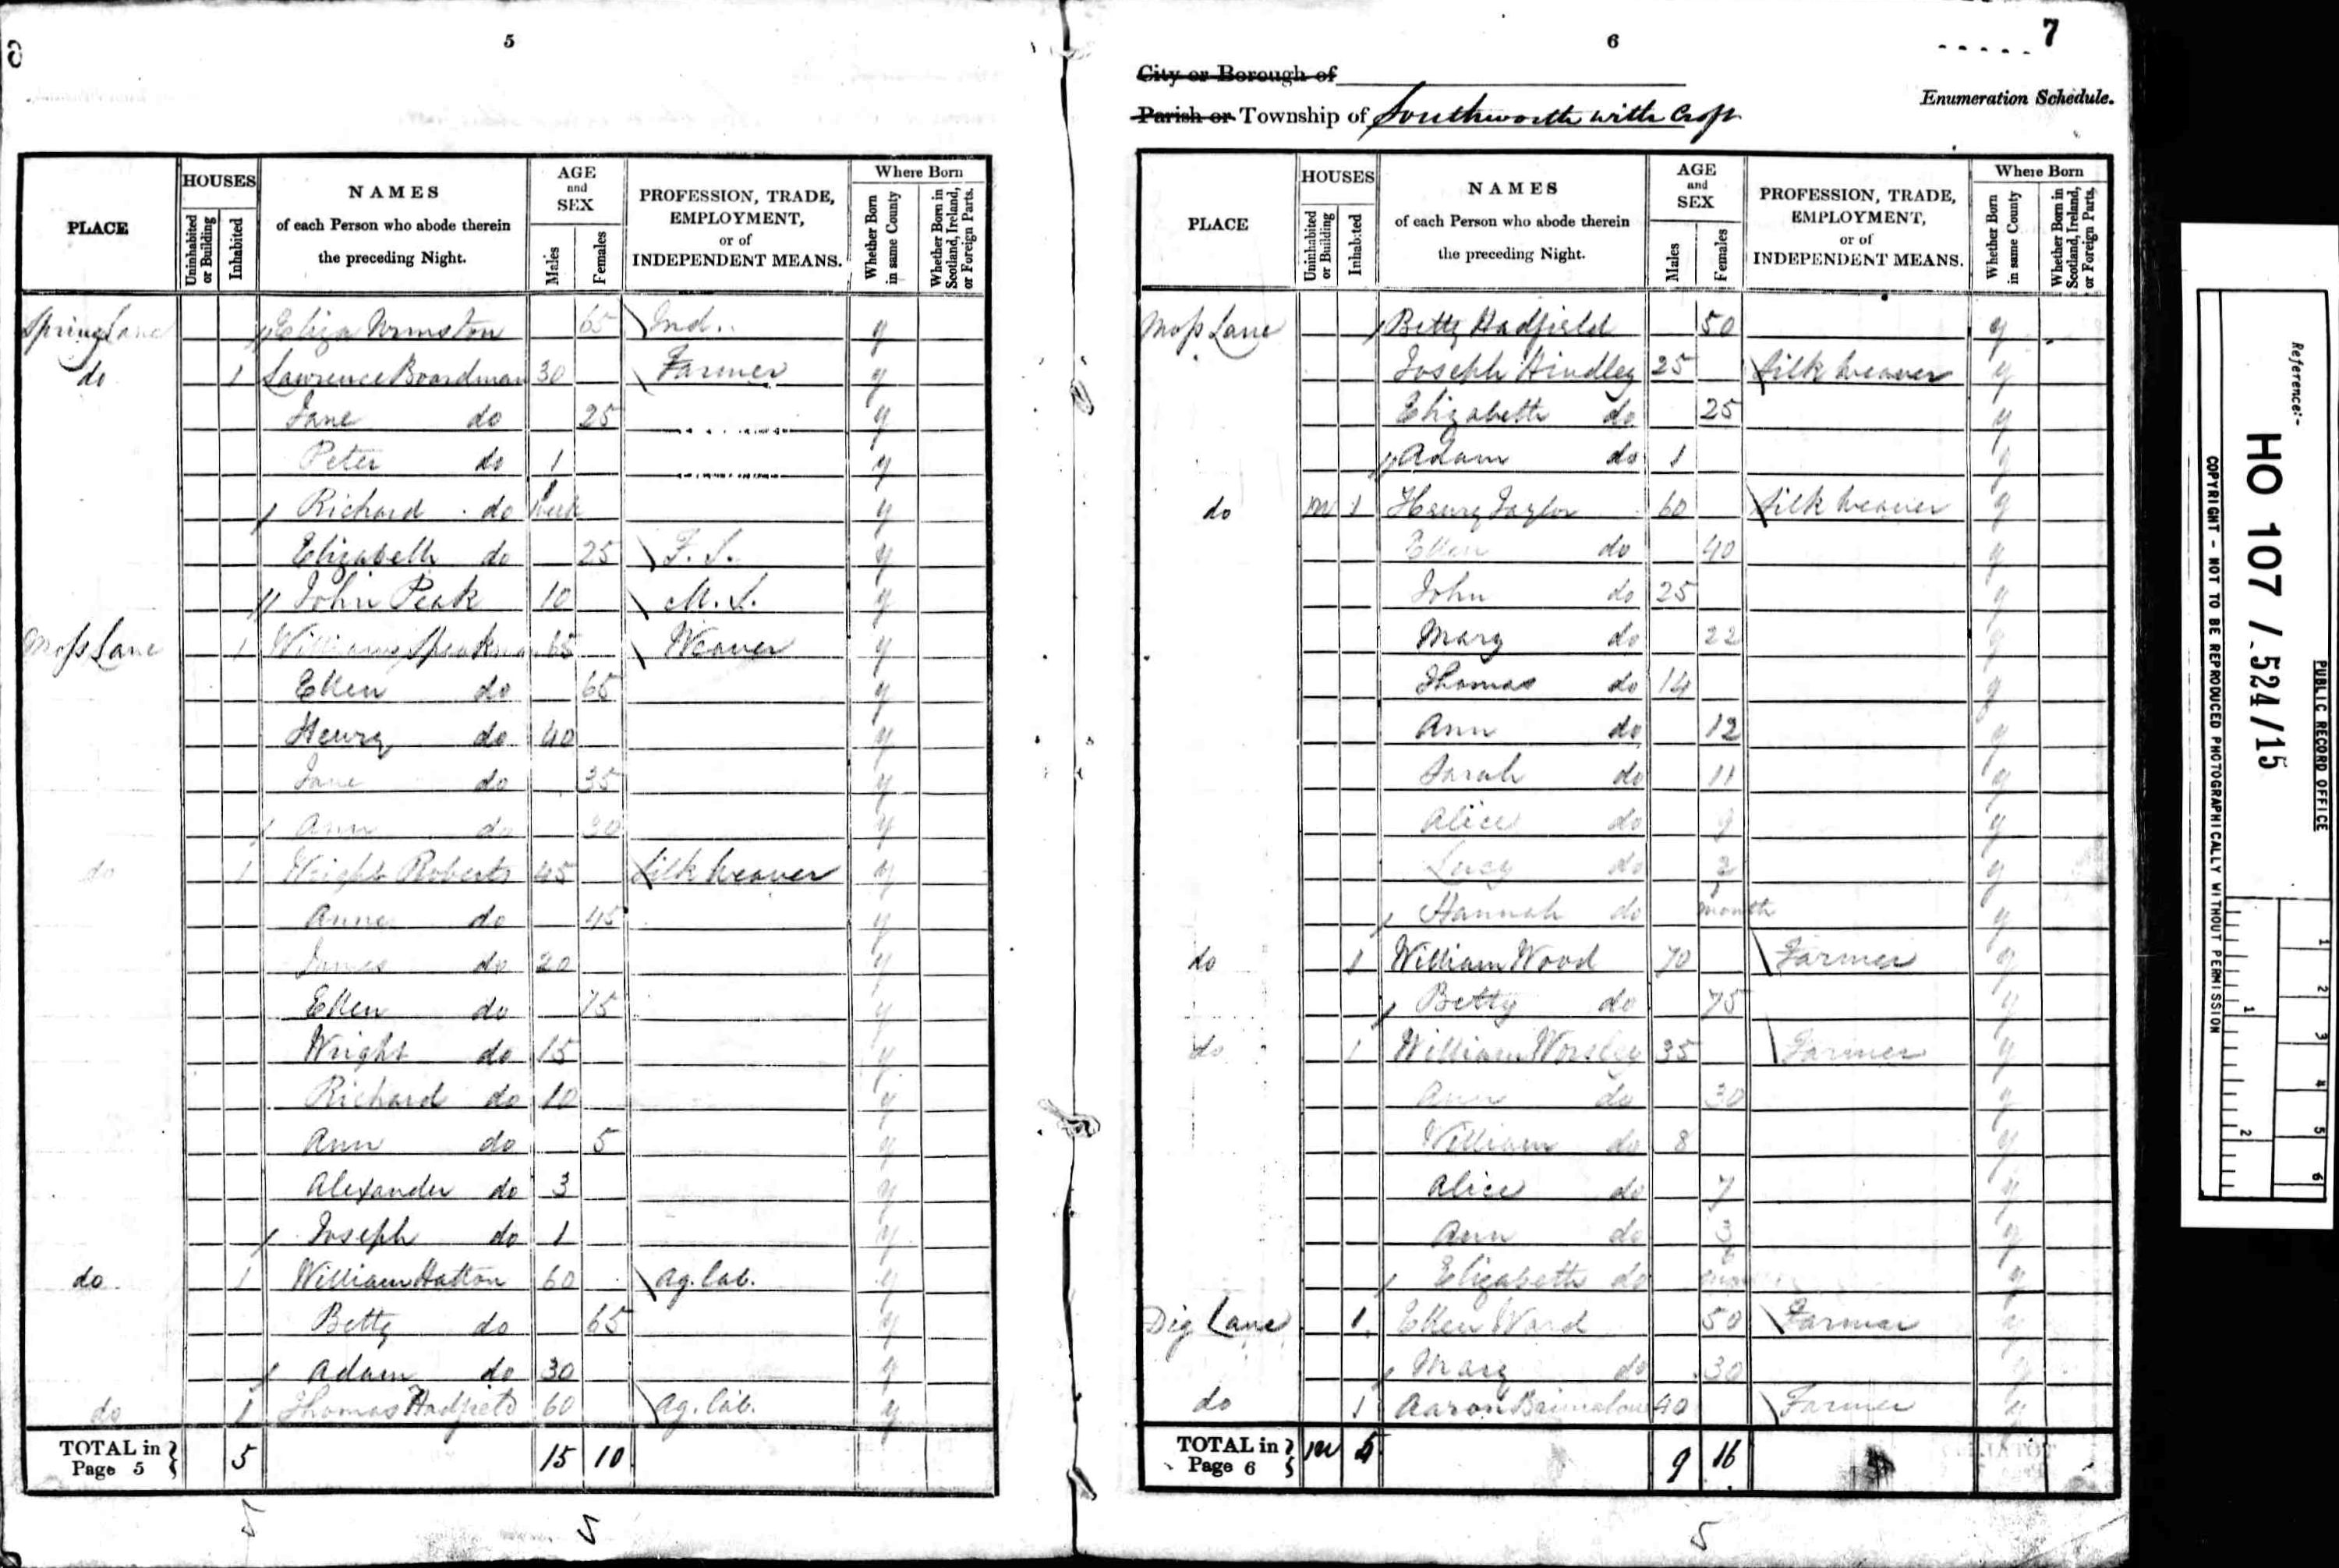 5
PLACE HOUSES Uninhabited or Building Inhabited NAMES of each Person who abode therein the preceding Night. AGE and SEX Males Females PROFESSION, TRADE, EMPLOYMENT, or of INDEPENDENT MEANS. Where Born Whether Born in same County Whether Born in Scotland, Ireland, or Foreign Parts.
Spring Lane Eliza Urmston 65 Ind. y
do 1 Lawrence Boardman 30 Farmer y
Jane do 25 y
Peter do 1 y
Richard do 1 week y
Elizabeth do 25 F. S. y
John Peak 10 M. S. y
Moss Lane 1 William Speakman 65 Weaver y
Ellen do 65 y
Henry do 40 y
Jane do 35 y
Ann do 30 y
do 1 Wright Roberts 45 Silk Weaver y
Anne do 45 y
James do 20 y
Ellen do 15 y
Wright do 15 y
Richard do 10 y
Ann do 5 y
Alexander do 3 y
Joseph do 1 y
do 1 William Hatton 60 Ag. Lab. y
Betty do 65 y
Adam do 30 y
do 1 Thomas Hadfield 60 Ag. Lab. y
TOTAL in Page 5 5 15 10
5 5
6 7
City or Borough of
Parish or Township of Southworth with Croft
Enumeration Schedule.
PLACE HOUSES Uninhabited or Building Inhabited NAMES of each Person who abode therein the preceding Night. AGE and SEX Males Females PROFESSION, TRADE, EMPLOYMENT, or of INDEPENDENT MEANS. Where Born Whether Born in same County Whether Born in Scotland, Ireland, or Foreign Parts.
Moss Lane Betty Hadfield 50 y
Joseph Hindley 25 Silk Weaver y
Elizabeth do 25 y
Adam do 1 y
do 1 Henry Taylor 60 Silk Weaver y
Ellen do 40 y
John do 25 y
Mary do 22 y
Thomas do 14 y
Ann do 12 y
Sarah do 11 y
Alice do 9 y
Lucy do 2 y
Hannah do month y
do 1 William Wood 70 Farmer y
Betty do 75 y
do 1 William Worsley 35 Farmer y
Ann do 30 y
William do 8 y
Alice do 7 y
Ann do 3 y
Elizabeth do y
Dig Lane 1 Ellen Ward 50 Farmer y
Mary do 30 y
do 1 Aaron 40 Farmer y
TOTAL in Page 6 5 9 16
5
Reference:-
HO 107 / 524/15
PUBLIC RECORD OFFICE
COPYRIGHT - NOT TO BE REPRODUCED PHOTOGRAPHICALLY WITHOUT PERMISSION
1 2 3 4 5 6
1 2